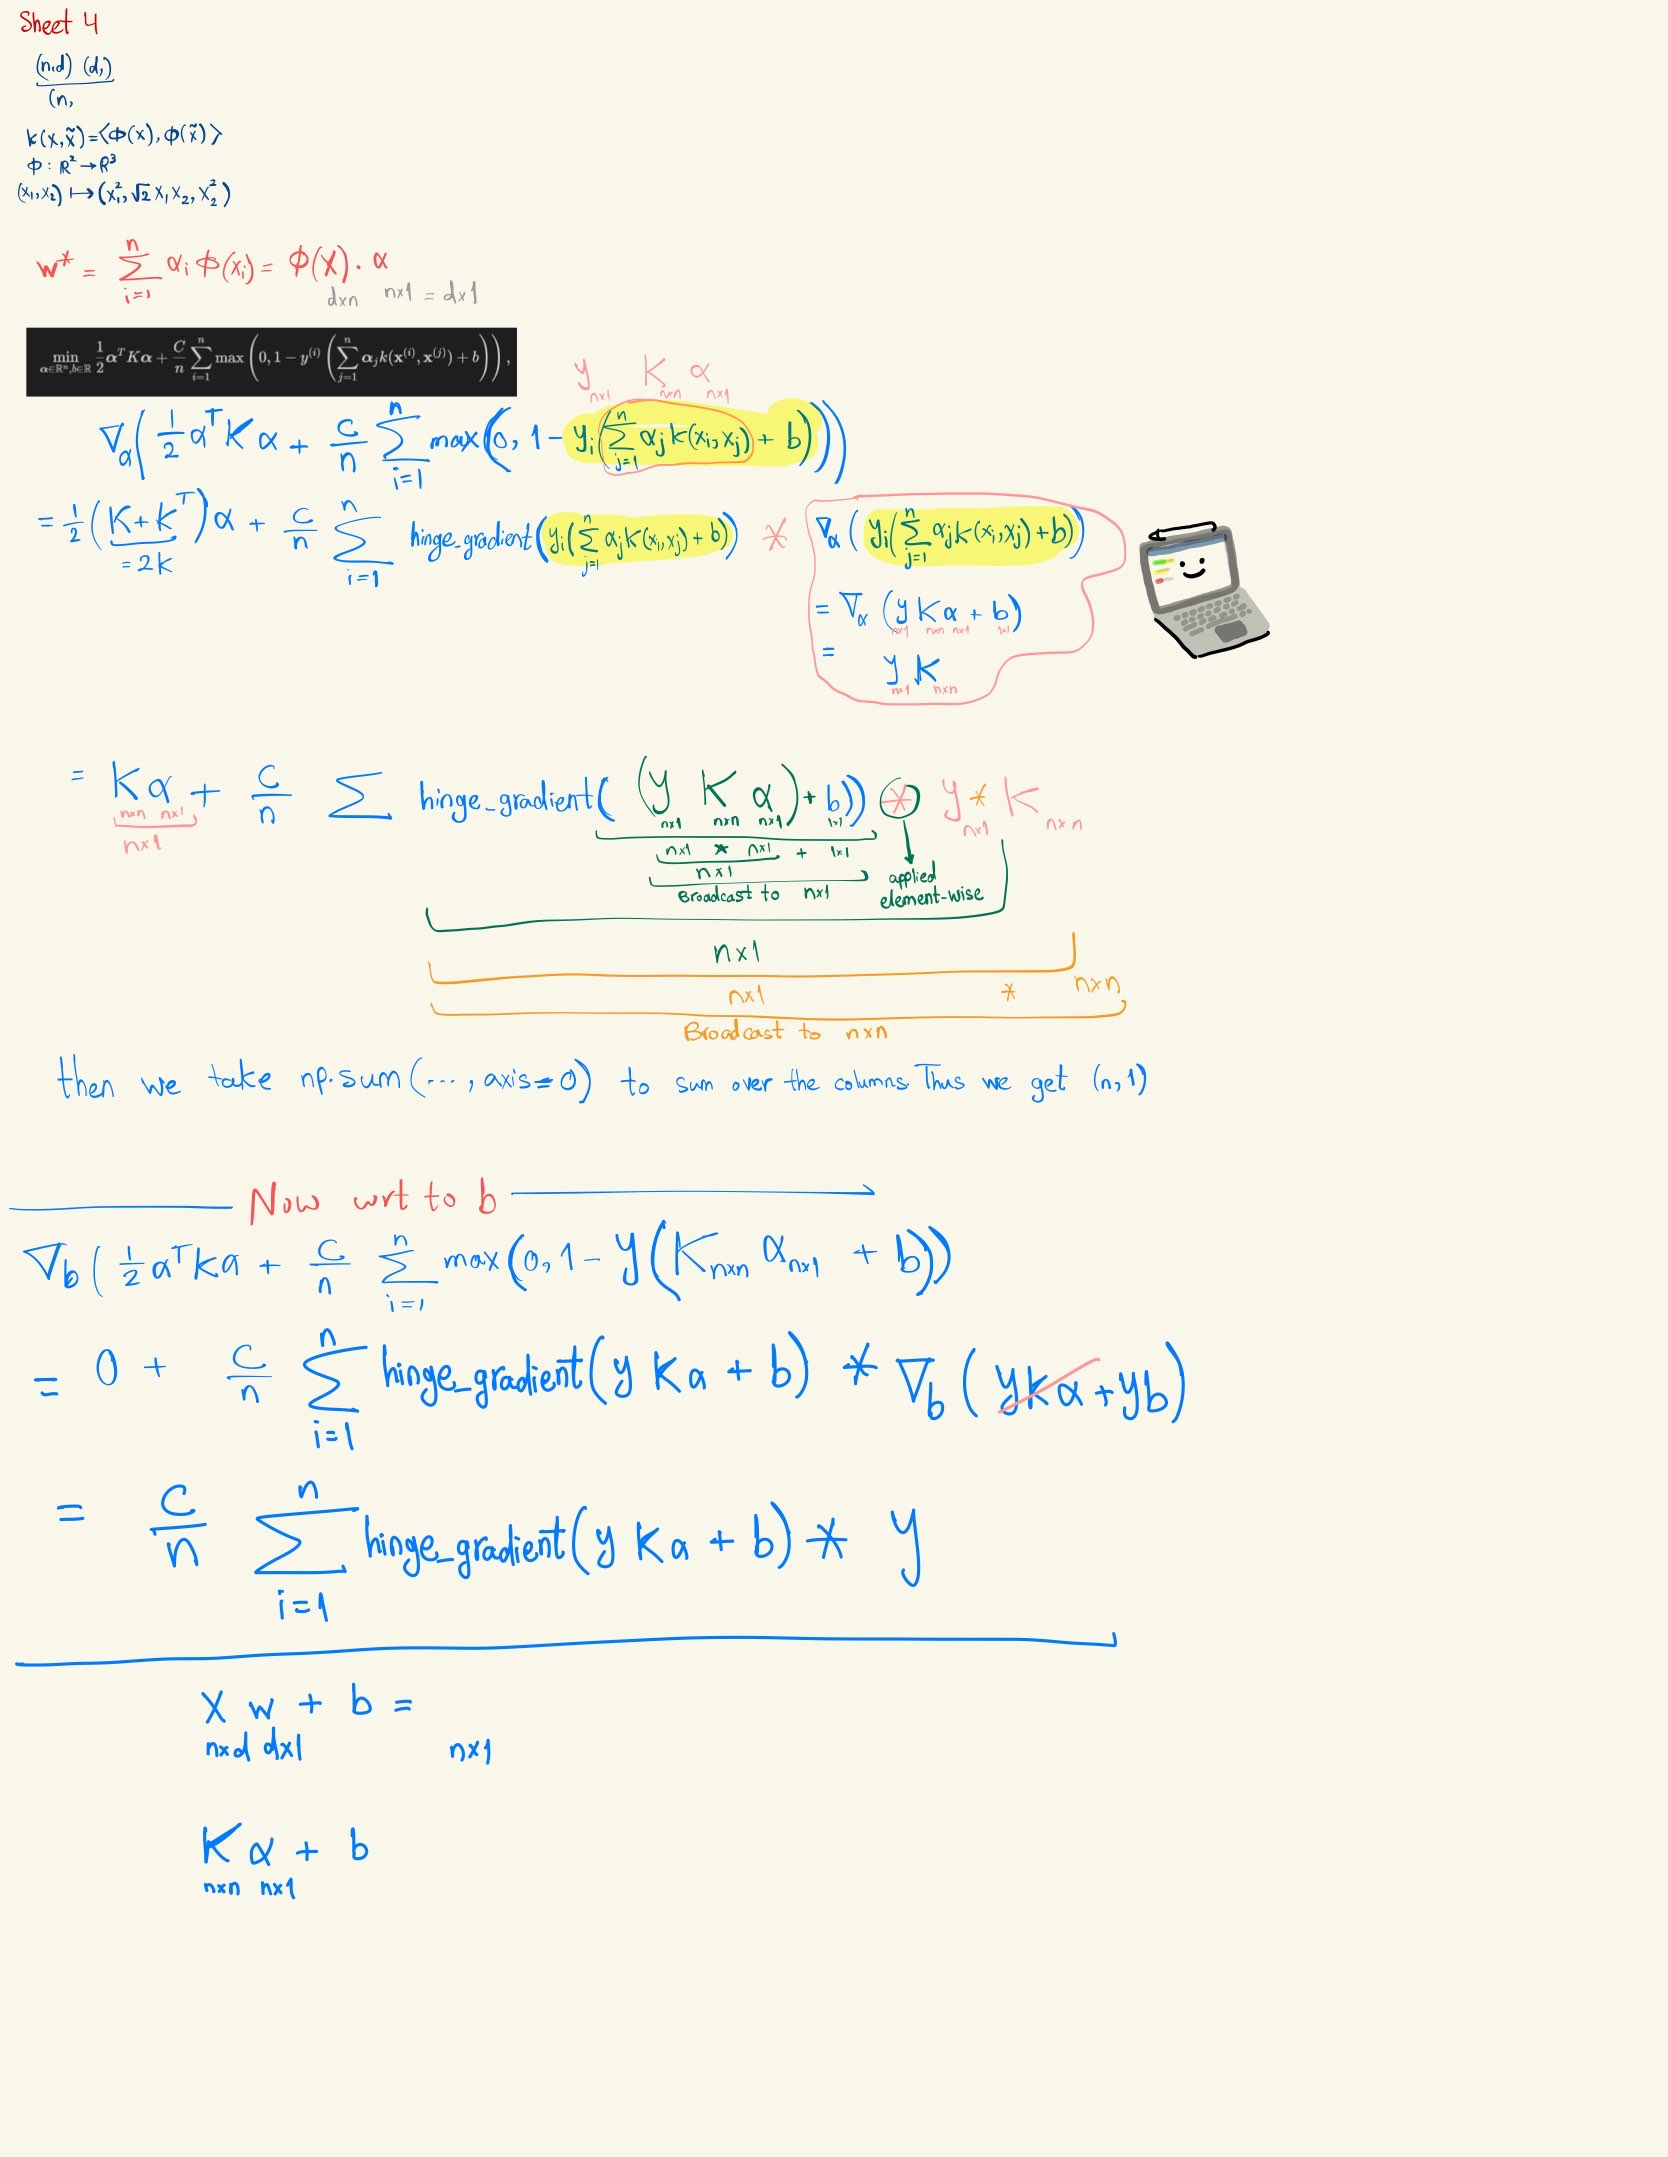 Sheet 4
(n,d) (d,)
(n,
k(x,x̃)=⟨Φ(x),Φ(x̃)⟩
Φ : R² → R³
(x₁,x₂) ↦ (x₁², √2 x₁x₂, x₂²)
w* = Σ_{i=1}^{n} α_i Φ(x_i) = Φ(X) · α
d×n n×1 = d×1
min_{α∈ℝⁿ,b∈ℝ} 1/2 αᵀKα + C/n Σ_{i=1}^{n} max(0, 1 − y⁽ⁱ⁾(Σ_{j=1}^{n} α_j k(x⁽ⁱ⁾, x⁽ʲ⁾) + b)),
y K α
n×1 n×n n×1
∇_α(1/2 αᵀKα + C/n Σ_{i=1}^{n} max(0, 1 − y_i(Σ_{j=1}^{n} α_j k(x_i,x_j) + b)))
= 1/2 (K+Kᵀ)α + C/n Σ_{i=1}^{n} hinge_gradient(y_i(Σ_{j=1}^{n} α_j k(x_i,x_j) + b)) * ∇_α(y_i(Σ_{j=1}^{n} α_j k(x_i,x_j) + b))
= 2K
= ∇_α (y K α + b)
n×1 n×n n×1 1×1
= y K
n×1 n×n
= Kα + C/n Σ hinge_gradient((y K α) + b)) * y * K
n×n n×1 n×1 n×n n×1 1×1 n×1 n×n
n×1
n×1 * n×1 + 1×1
n×1
Broadcast to n×1
applied
element-wise
n×1
n×1 * n×n
Broadcast to n×n
then we take np.sum(..., axis=0) to sum over the columns. Thus we get (n,1)
Now wrt to b
∇_b (1/2 αᵀKα + C/n Σ_{i=1}^{n} max(0, 1 − y(K_{n×n} α_{n×1} + b))
= 0 + C/n Σ_{i=1}^{n} hinge_gradient(y Kα + b) * ∇_b (yKα + yb)
= C/n Σ_{i=1}^{n} hinge_gradient(y Kα + b) * y
X w + b =
n×d d×1 n×1
K α + b
n×n n×1